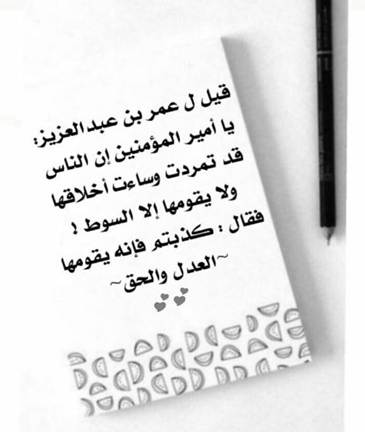 قيل ل عمر بن عبدالعزيز:
يا أمير المؤمنين إن الناس
قد تمردت وساءت أخلاقها
ولا يقومها إلا السوط !
فقال : كذبتم فإنه يقومها
~العدل والحق~